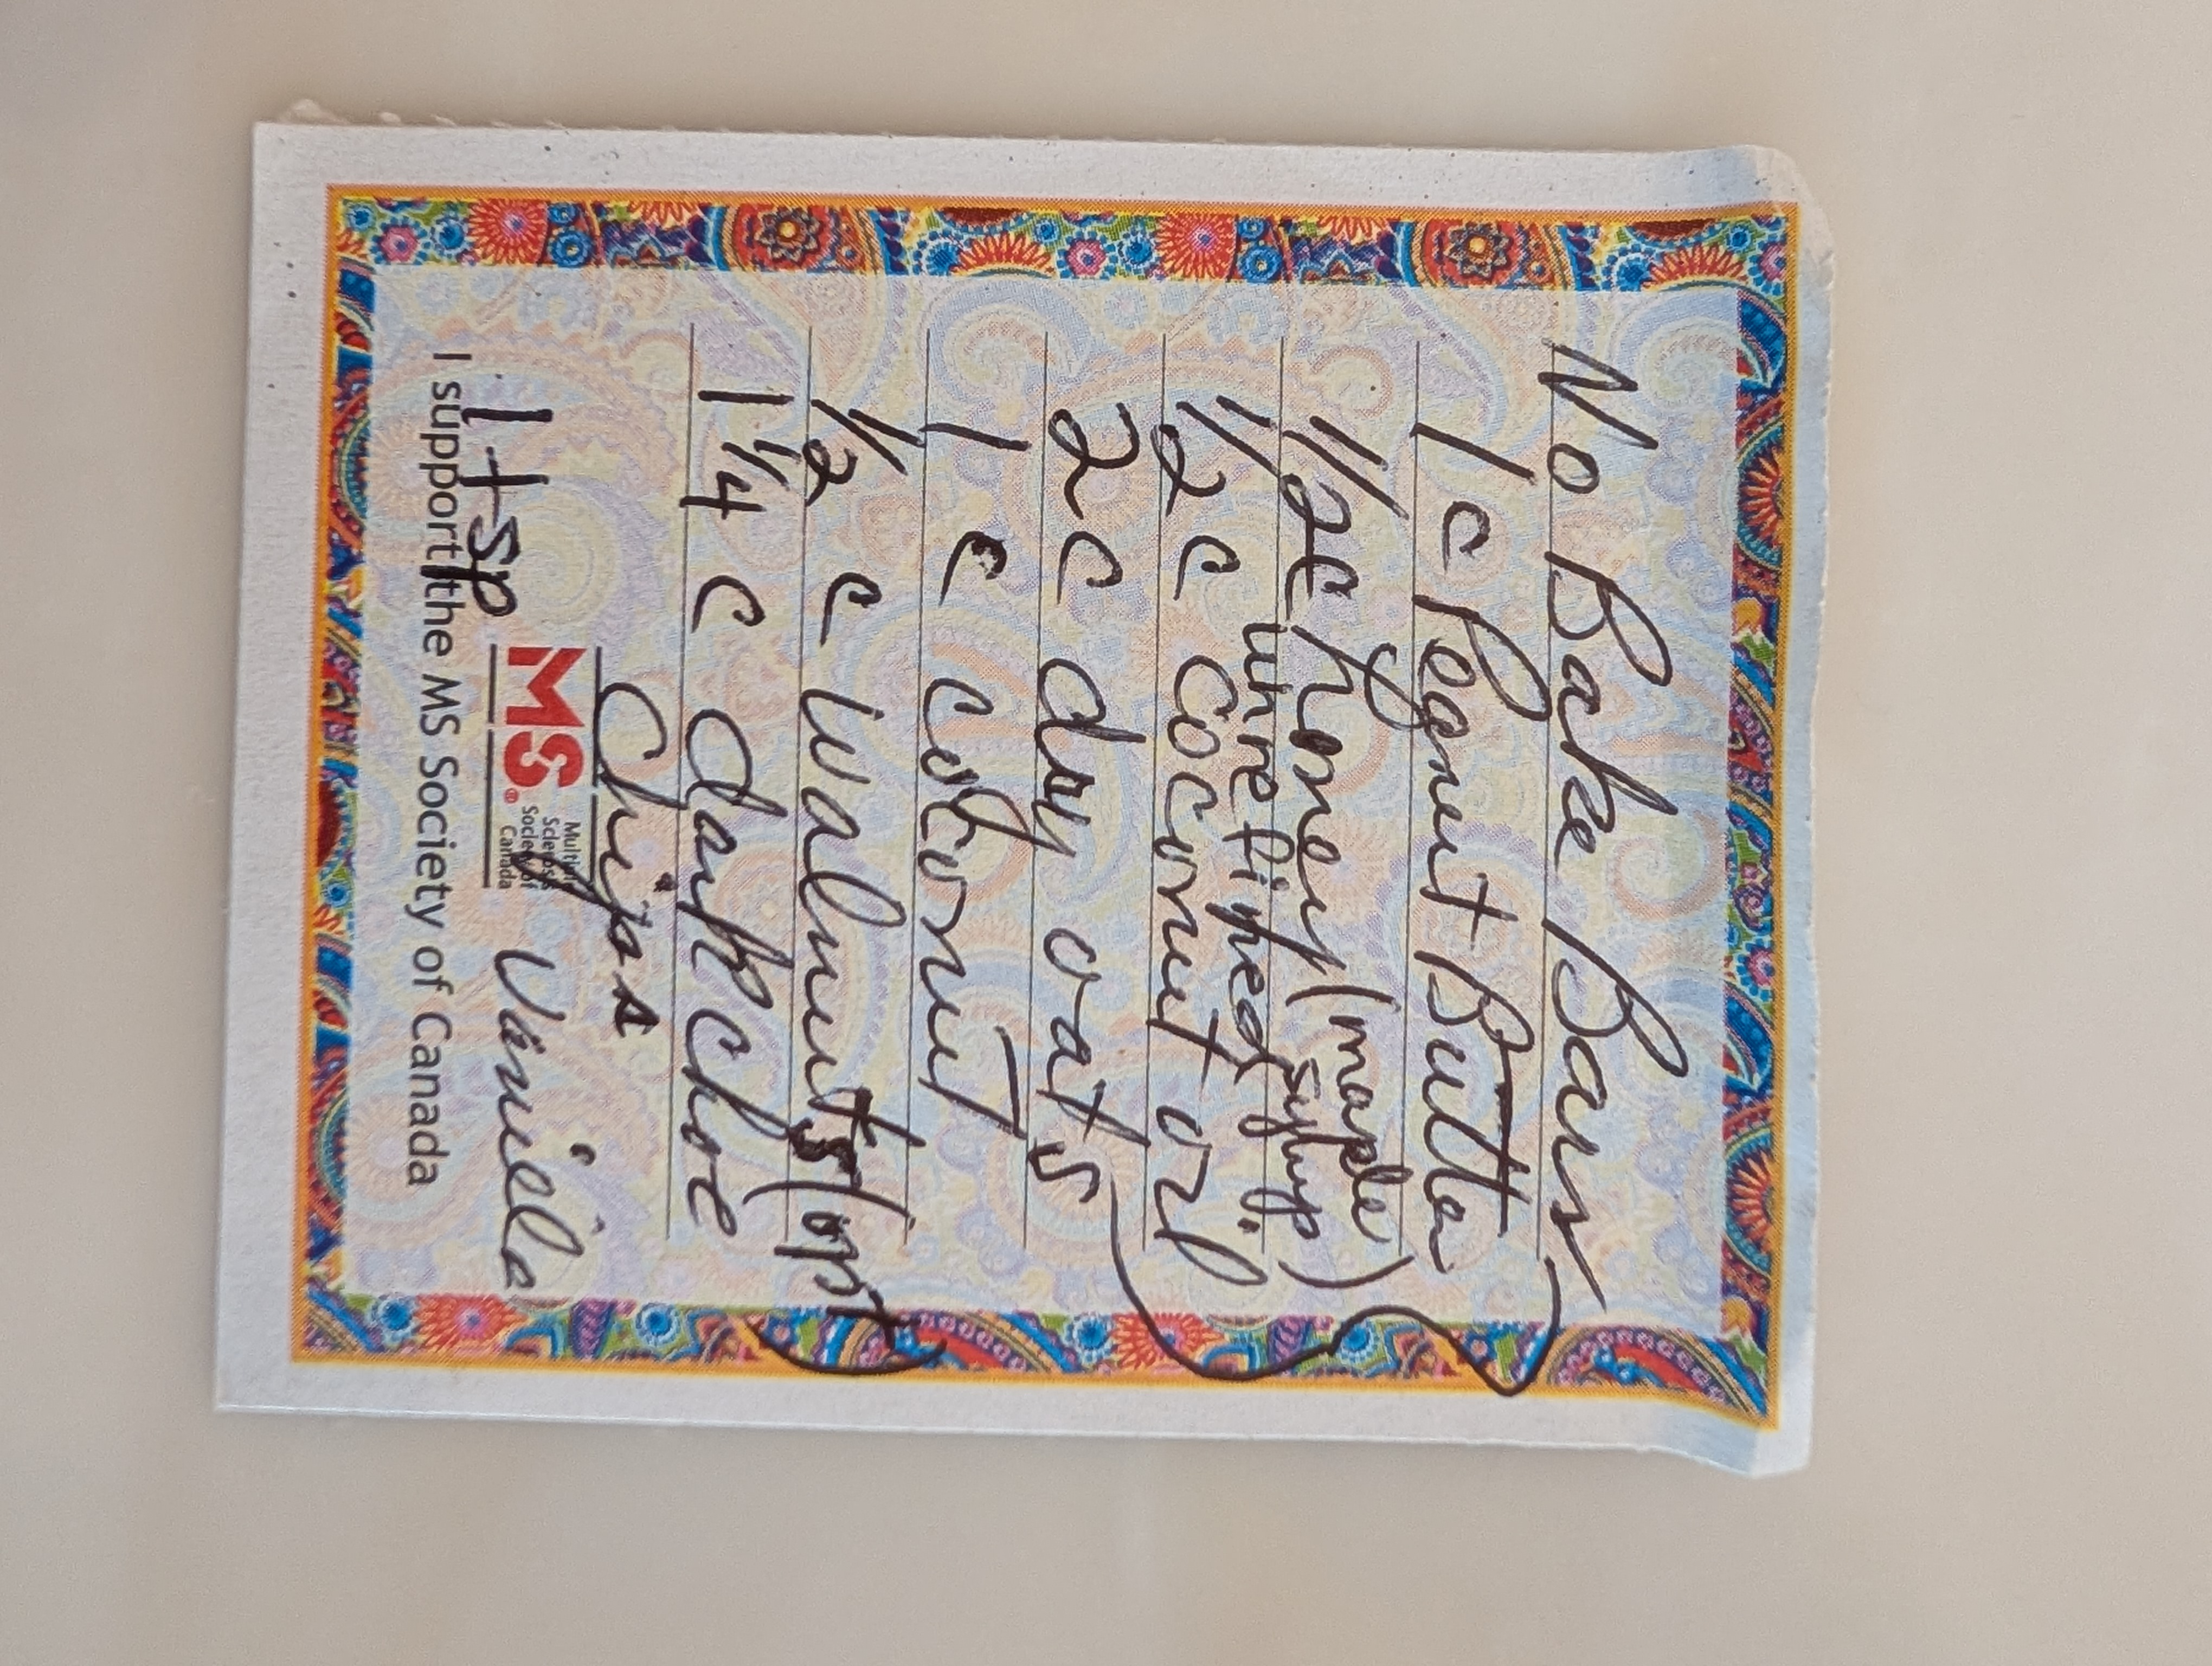 No Bake Bars
1 c Peanut Butter
1/2 c honey (maple syrup)
unrefined
1/2 c coconut oil
2 c dry oats
1 c coconut
1/2 c walnuts (opt)
1 1/4 c dark choc
Chips
1 tsp Vanilla
MS® Multiple Sclerosis Society of Canada
I support the MS Society of Canada